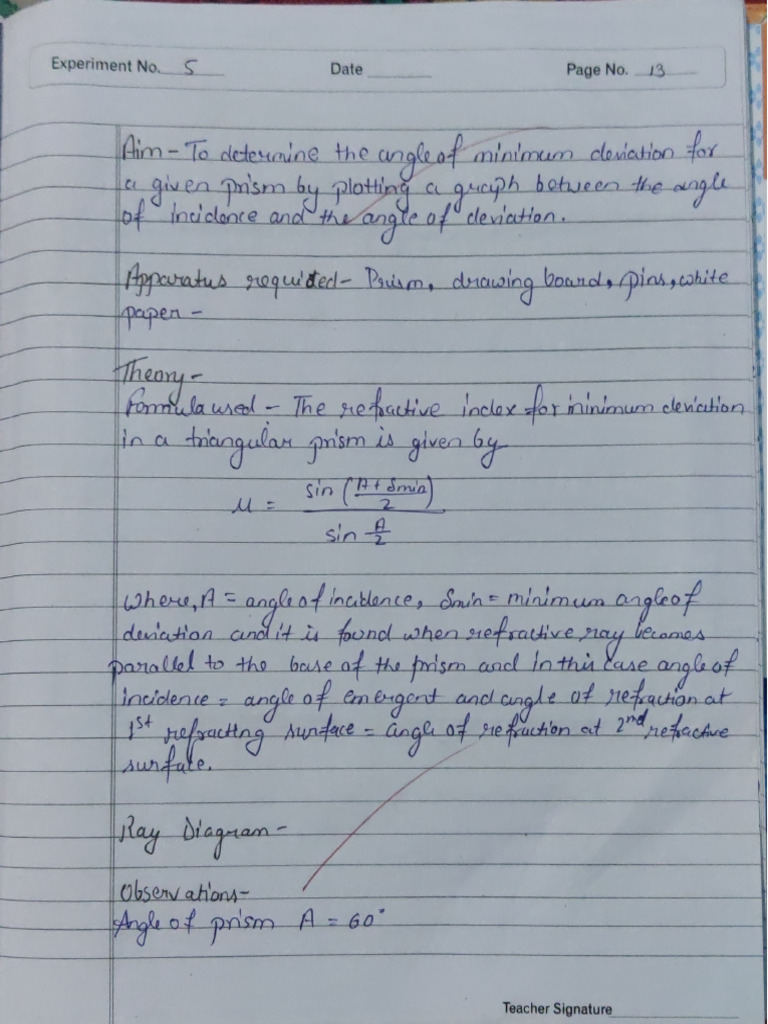 Experiment No. 5 Date Page No. 13
Aim - To determine the angle of minimum deviation for
a given prism by plotting a graph between the angle
of incidence and the angle of deviation.
Apparatus required - Prism, drawing board, pins, white
paper -
Theory -
Formula used - The refractive index for minimum deviation
in a triangular prism is given by
μ = sin (A + δmin / 2) / sin A/2
where, A = angle of incidence, δmin = minimum angle of
deviation and it is found when refractive ray becomes
parallel to the base of the prism and in this case angle of
incidence = angle of emergent and angle of refraction at
1st refracting surface = angle of refraction at 2nd refractive
surface.
Ray Diagram -
Observations -
Angle of prism A = 60°
Teacher Signature